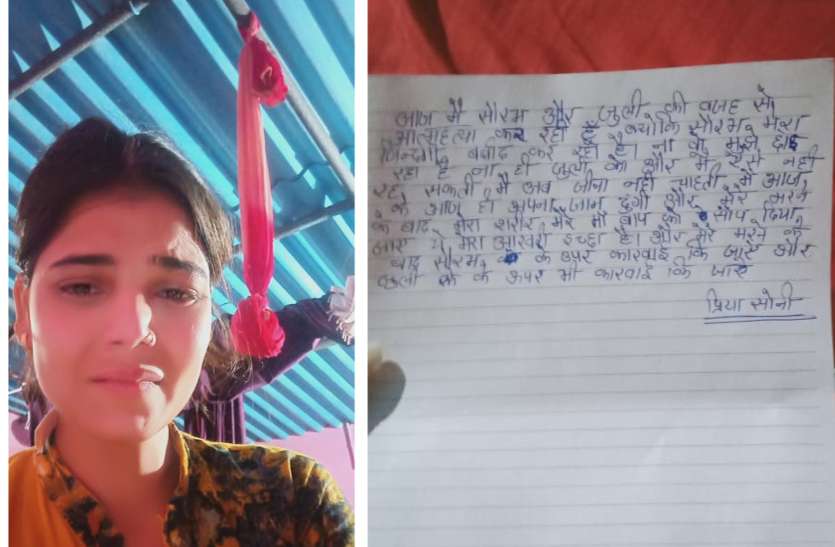 आज मैं सौरभ और जुली की वजह से
आत्माहत्या कर रही हूँ क्योकि सौरभ मेरा
जिन्दगी बर्बाद कर रहा है। ना वो मुझे छोड़
रहा है ना ही जुली को और मैं ऐसे नही
रह सकती मैं अब जीना नही चाहती मैं आज
के आज ही अपना जान दूंगी और मेरे मरने
के बाद मेरा शरीर मेरे माँ बाप को सौप दिया
जाए ये मेरा आखरी इच्छा है। और मेरे मरने के
बाद सौरभ के उपर कारवाई कि जाए और
जुली के ऊपर भी कारवाई कि जाए
प्रिया सोनी